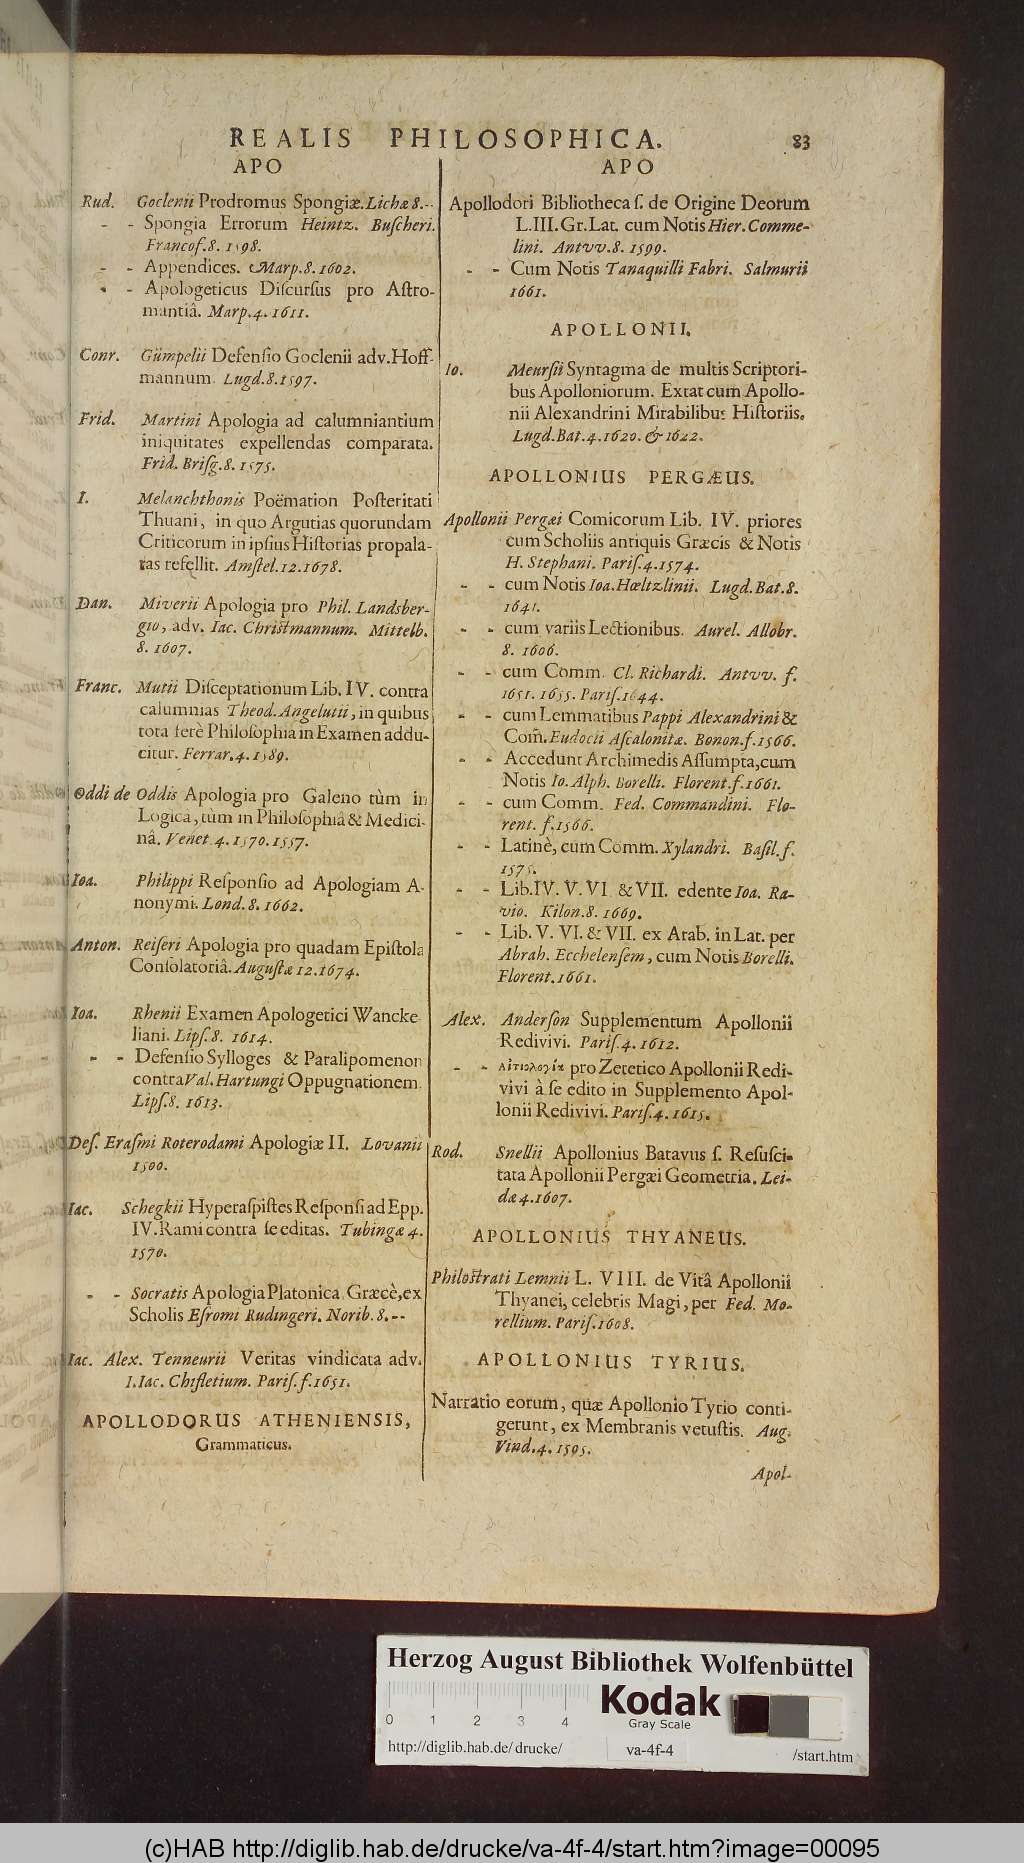 REALIS PHILOSOPHICA. 83
APO
Rud. Goclenii Prodromus Spongiæ. Lichæ 8.--
- - Spongia Errorum Heintz. Buſcheri.
Francof. 8. 1598.
- - Appendices. Marp. 8. 1602.
- - Apologeticus Diſcurſus pro Aſtro-
mantiâ. Marp. 4. 1611.
Conr. Gümpelii Defenſio Goclenii adv. Hoff-
mannum. Lugd. 8. 1597.
Frid. Martini Apologia ad calumniantium
iniquitates expellendas comparata.
Frid. Briſg. 8. 1575.
I. Melanchthonis Poëmation Poſteritati
Thuani, in quo Argutias quorundam
Criticorum in ipſius Hiſtorias propala-
tas refellit. Amſtel. 12. 1678.
Dan. Miverii Apologia pro Phil. Landsber-
gio, adv. Iac. Chriſtmannum. Mittelb.
8. 1607.
Franc. Mutii Diſceptationum Lib. IV. contra
calumnias Theod. Angelutii, in quibus
tota ferè Philoſophia in Examen addu-
citur. Ferrar. 4. 1589.
Oddi de Oddis Apologia pro Galeno tùm in
Logica, tùm in Philoſophiâ & Medici-
nâ. Venet. 4. 1570. 1557.
Ioa. Philippi Reſponſio ad Apologiam A-
nonymi. Lond. 8. 1662.
Anton. Reiſeri Apologia pro quadam Epiſtola
Conſolatoriâ. Auguſtæ 12. 1674.
Ioa. Rhenii Examen Apologetici Wancke
liani. Lipſ. 8. 1614.
- - Defenſio Sylloges & Paralipomenon
contra Val. Hartungi Oppugnationem.
Lipſ. 8. 1613.
Deſ. Eraſmi Roterodami Apologiæ II. Lovanii
1500.
Iac. Schegkii Hyperaſpiſtes Reſponſi ad Epp.
IV. Rami contra ſe editas. Tubingæ 4.
1570.
- - Socratis Apologia Platonica Græcè, ex
Scholis Eſromi Rudingeri. Norib. 8. --
Iac. Alex. Tenneurii Veritas vindicata adv.
I. Iac. Chifletium. Pariſ. f. 1651.
APOLLODORUS ATHENIENSIS,
Grammaticus.
APO
Apollodori Bibliotheca ſ. de Origine Deorum
L. III. Gr. Lat. cum Notis Hier. Comme-
lini. Antvv. 8. 1599.
- - Cum Notis Tanaquilli Fabri. Salmurii
1661.
APOLLONII.
Io. Meurſii Syntagma de multis Scriptori-
bus Apolloniorum. Extat cum Apollo-
nii Alexandrini Mirabilibus Hiſtoriis.
Lugd. Bat. 4. 1620. & 1622.
APOLLONIUS PERGÆUS.
Apollonii Pergæi Comicorum Lib. IV. priores
cum Scholiis antiquis Græcis & Notis
H. Stephani. Pariſ. 4. 1574.
- - cum Notis Ioa. Hœltzlinii. Lugd. Bat. 8.
1641.
- - cum variis Lectionibus. Aurel. Allobr.
8. 1606.
- - cum Comm. Cl. Richardi. Antvv. f.
1651. 1655. Pariſ. 1644.
- - cum Lemmatibus Pappi Alexandrini &
Com̃. Eudocii Aſcalonitæ. Bonon. f. 1566.
- - Accedunt Archimedis Aſſumpta, cum
Notis Io. Alph. Borelli. Florent. f. 1661.
- - cum Comm. Fed. Commandini. Flo-
rent. f. 1566.
- - Latinè, cum Comm. Xylandri. Baſil. f.
1575.
- - Lib. IV. V. VI. & VII. edente Ioa. Ra-
vio. Kilon. 8. 1669.
- - Lib. V. VI. & VII. ex Arab. in Lat. per
Abrah. Ecchelenſem, cum Notis Borelli.
Florent. 1661.
Alex. Anderſon Supplementum Apollonii
Redivivi. Pariſ. 4. 1612.
- - Αἰτιολογία pro Zetetico Apollonii Redi-
vivi à ſe edito in Supplemento Apol-
lonii Redivivi. Pariſ. 4. 1615.
Rod. Snellii Apollonius Batavus ſ. Reſuſci-
tata Apollonii Pergæi Geometria. Lei-
dæ 4. 1607.
APOLLONIUS THYANEUS.
Philoſtrati Lemnii L. VIII. de Vitâ Apollonii
Thyanei, celebris Magi, per Fed. Mo-
rellium. Pariſ. 1608.
APOLLONIUS TYRIUS.
Narratio eorum, quæ Apollonio Tyrio conti-
gerunt, ex Membranis vetuſtis. Aug.
Vind. 4. 1595.
Apol-
Herzog August Bibliothek Wolfenbüttel
0 1 2 3 4
Kodak
Gray Scale
http://diglib.hab.de/drucke/ va-4f-4 /start.htm
(c)HAB http://diglib.hab.de/drucke/va-4f-4/start.htm?image=00095